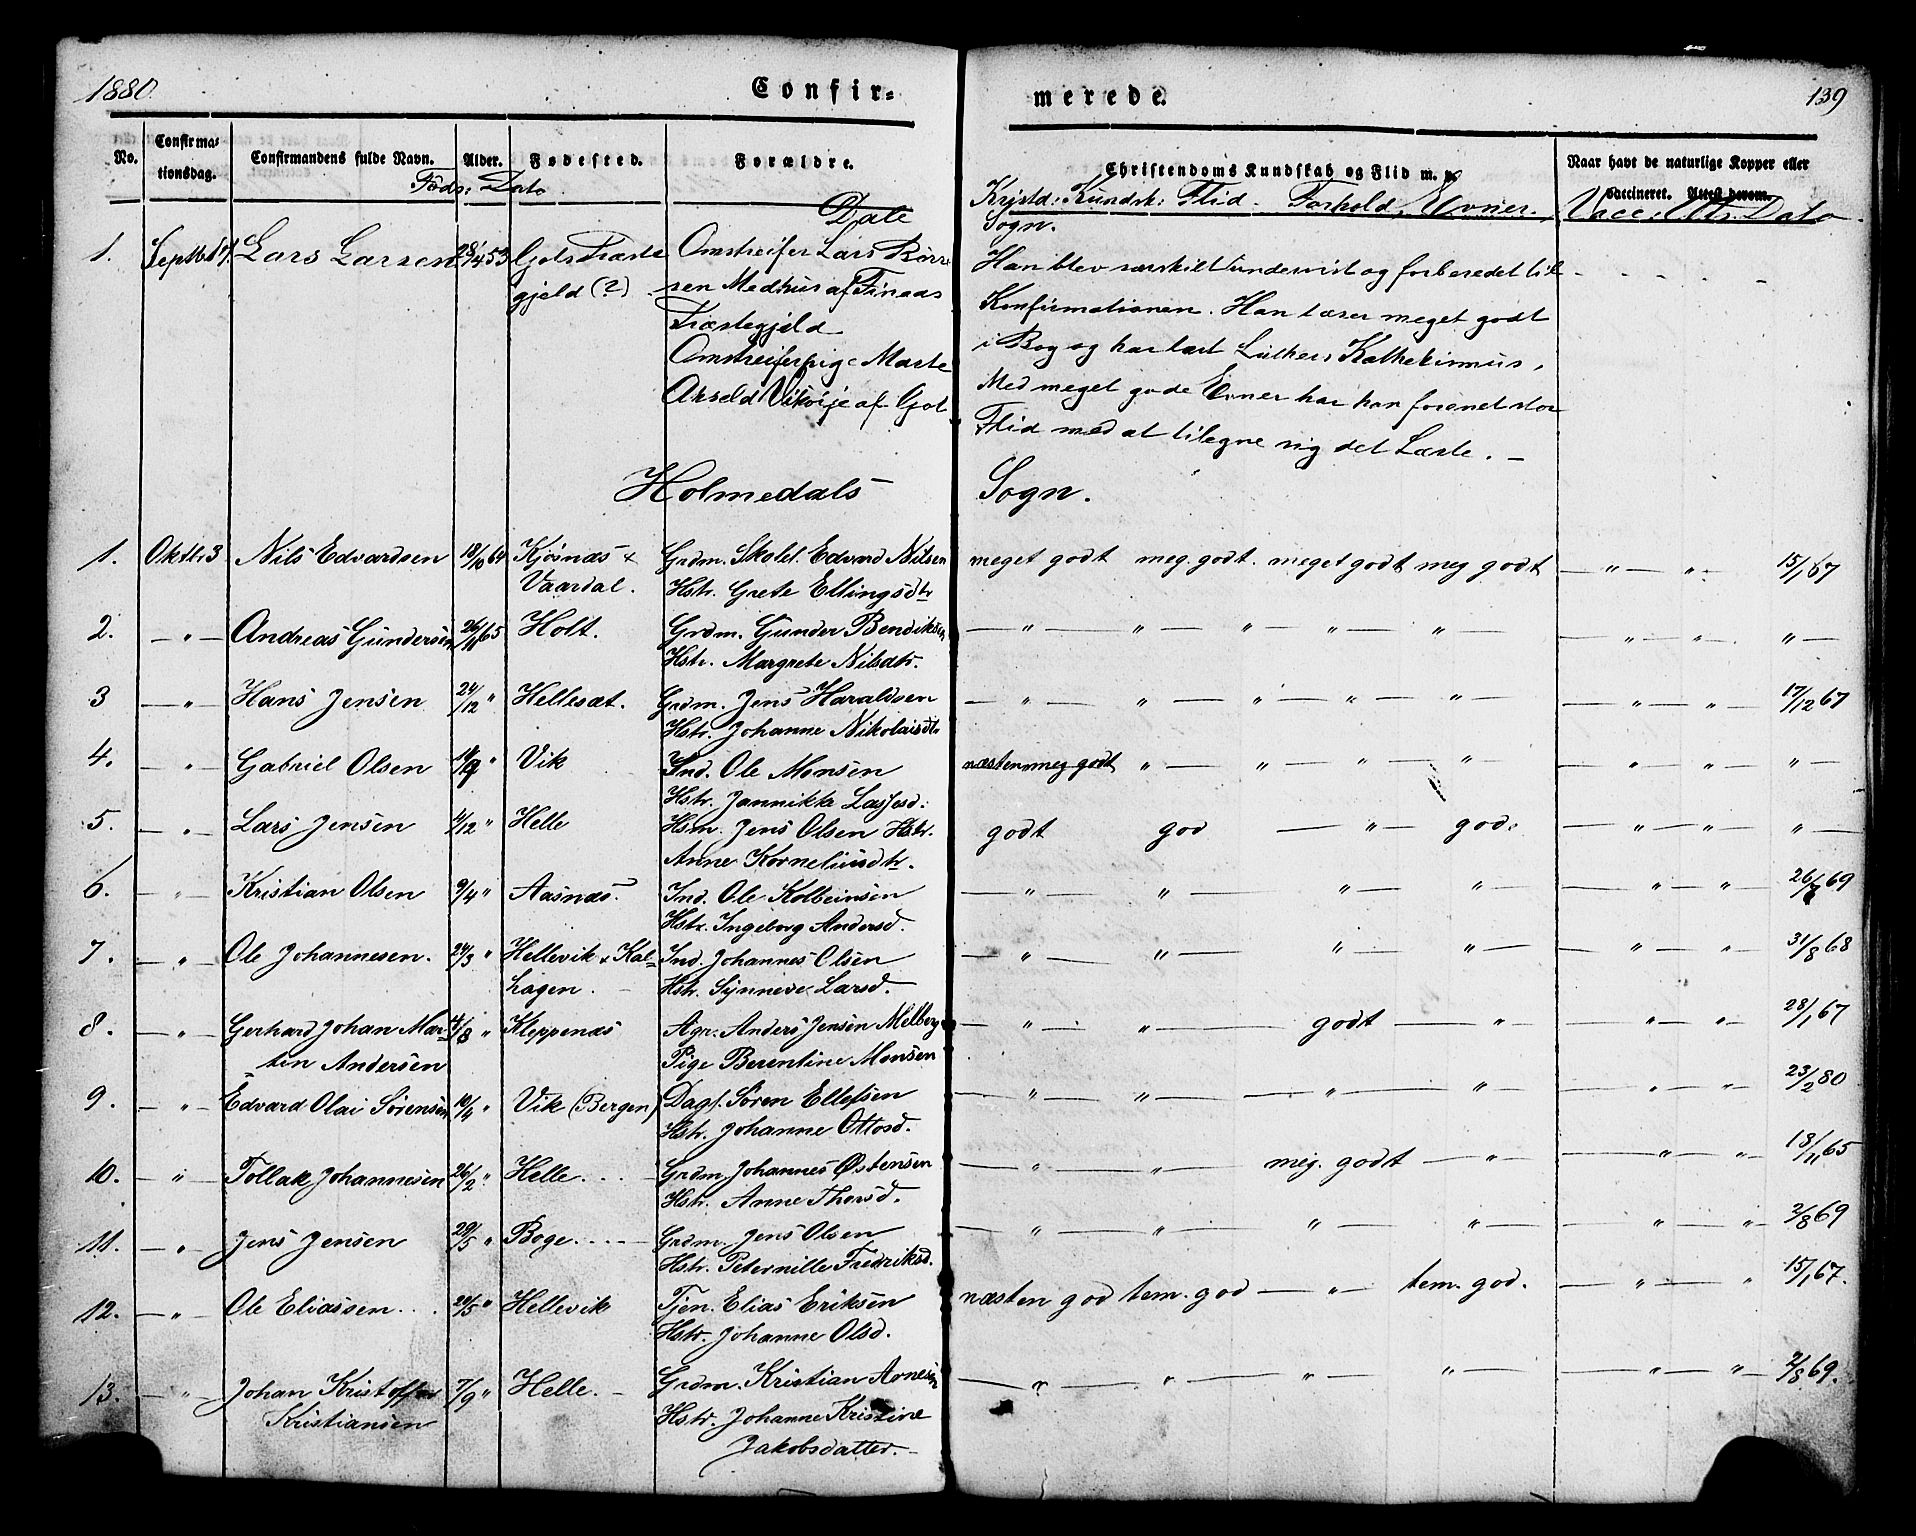 1880.
Confir=
merede.
139
No.
Confirma=
tionsdag.
Confirmandens fulde Navn.
Alder.
Fødested.
Forældre.
Christendoms Kundskab og Flid m. v.
Naar havt de naturlige Kopper eller
vaccineret. Attest derom.
Føds: Dato
Kristd: Kundsk: Flid. Forhold. Evner. Vacc: Att: Dato.
Dale
Sogn.
1. Septbr Lars Larsen 53 Gols Præste Omstreifer Lars Børre
gjeld (?) sen Medhus af Finaas
Præstegjeld
Omstreiferpige Marte
af Gol
Han blev særskilt undervist og forberedet til
Konfirmationen. Han læser meget godt
i Bog og har lært Luthers Kathekismus.
Med meget gode Evner har han forenet stor
Flid med at tilegne sig det Lærte. —
Holmedals
Sogn.
1. Oktbr 3 Nils Edvardsen 18/10 64 Kjøsnæs + Grdm. Skolel. Edvard Nilsen meget godt meg. godt. meget godt meg godt — " — " — 15/1 67
Vaardal. Hstr. Grete Ellingsdtr
2. — " — Andreas Gundersen 26/11 65 Holt. Grdm. Gunder Bendiksen — " — " — " — " — " — — " — " — " —
Hstr. Margrete Nilsdtr.
3 — " — Hans Jensen 24/12 " Hellesæt. Grdm. Jens Haraldsen — " — " — " — " — " — — " — " — 17/12 67
Hstr. Johanne Nikolaisdtr
4. — " — Gabriel Olsen " Vik Ind. Ole Monsen næsten meg godt " — " — " — " — " — " — " —
Hstr. Jannikke Lassesd.
5. — " — Lars Jensen 4/12 " Helle Hsm. Jens Olsen Hstr. godt god — " — god. — " — " — " —
Anne Korneliusdtr.
6. — " — Kristian Olsen 9/4 " Aasnæs. Ind. Ole Kolbeinsen — " — " — " — " — " — " — 26/8 69
Hstr. Ingeborg Andersd.
7. — " — Ole Johannesen. 24/3 " Hellevik + Kal- Ind. Johannes Olsen — " — " — " — " — " — " — 31/8 68
hagen. Hstr. Synneve Larsd.
8. — " — Gerhard Johan Mar= 4/8 " Kleppenæs Agr. Anders Jensen Melberg — " — " — godt — " — " — " — 28/1 67
=ten Andersen Pige Berentine Monsen
9. — " — Edvard Olai Sørensen 10/4 " Vik (Bergen) Dagl. Søren Ellefsen — " — " — " — " — " — " — 23/2 80
Hstr. Johanne Ottosd.
10. — " — Tollak Johannesen 26/2 " Helle. Grdm. Johannes Østensen — " — " — meg. godt — " — " — " — 18/11 65
Hstr. Anne Thorsd.
11. — " — Jens Jensen 29/5 " Boge. Grdm. Jens Olsen — " — " — " — " — " — " — 2/8 69
Hstr. Peternille Fredriksd.
12. — " — Ole Eliassen 20/5 " Hellevik Tjen. Elias Eriksen næsten god tem. god — " — tem. god. — " — " 15/1 67.
Hstr. Johanne Olsd.
13. — " — Johan Kristoffer 7/9 " Helle. — Grdm. Kristian Arnesen — " — " — " — " — " — " — 2/8 69.
Kristiansen Hstr. Johanne Kristine
Jakobsdatter. —